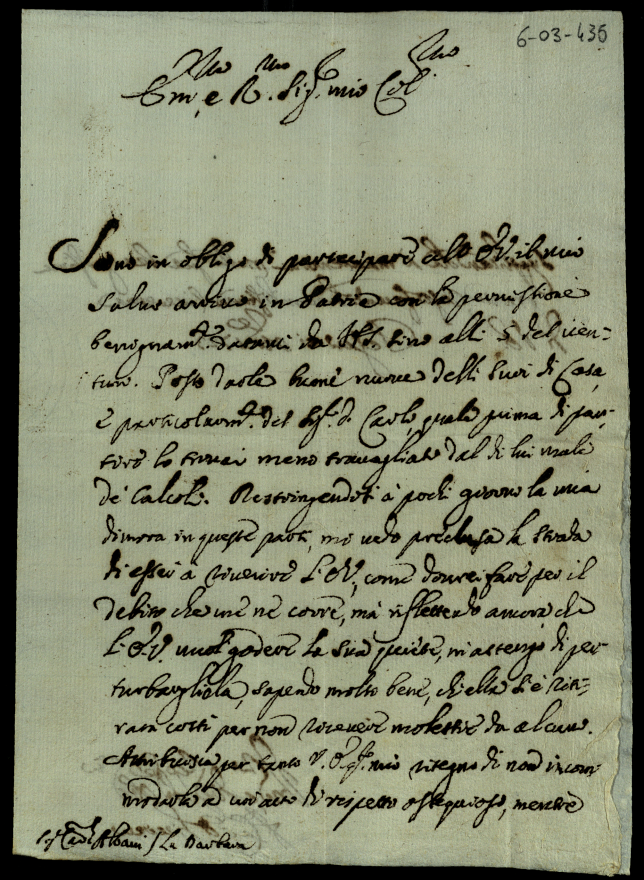 6-03-436
Em.mo e R.mo Sig.r mio Col.mo
Sono in obligo di participare all' E.V. il mio
salvo arrivo in Patria con la permissione
benignam.te datami da N.S. sino alli 5 del ven-
turo. Posso darle buone nuove delli suoi di Casa,
e particolarm.te del Sig.r D. Carlo, quale prima di par-
tire lo trovai meno travagliato dal di lui male
de' Calcoli. Restringendosi à pochi giorni la mia
dimora in queste parti, mi vedo preclusa la strada
di essere a riverire l'E.V., come dovrei fare per il
debito che me ne corre, mà riflettendo ancora che
l'E.V. vuol godere la sua quiete, m'astengo di per-
turbargliela, sapendo molto bene, ch'ella si è riti-
rata costì per non ricevere molestie da alcuno.
Attribuisca per tanto V.E. q.to mio ritegno di non incom-
modarla ad un' atto di rispetto ossequioso, mentre
Sig. Card.l Albani / La Barbara